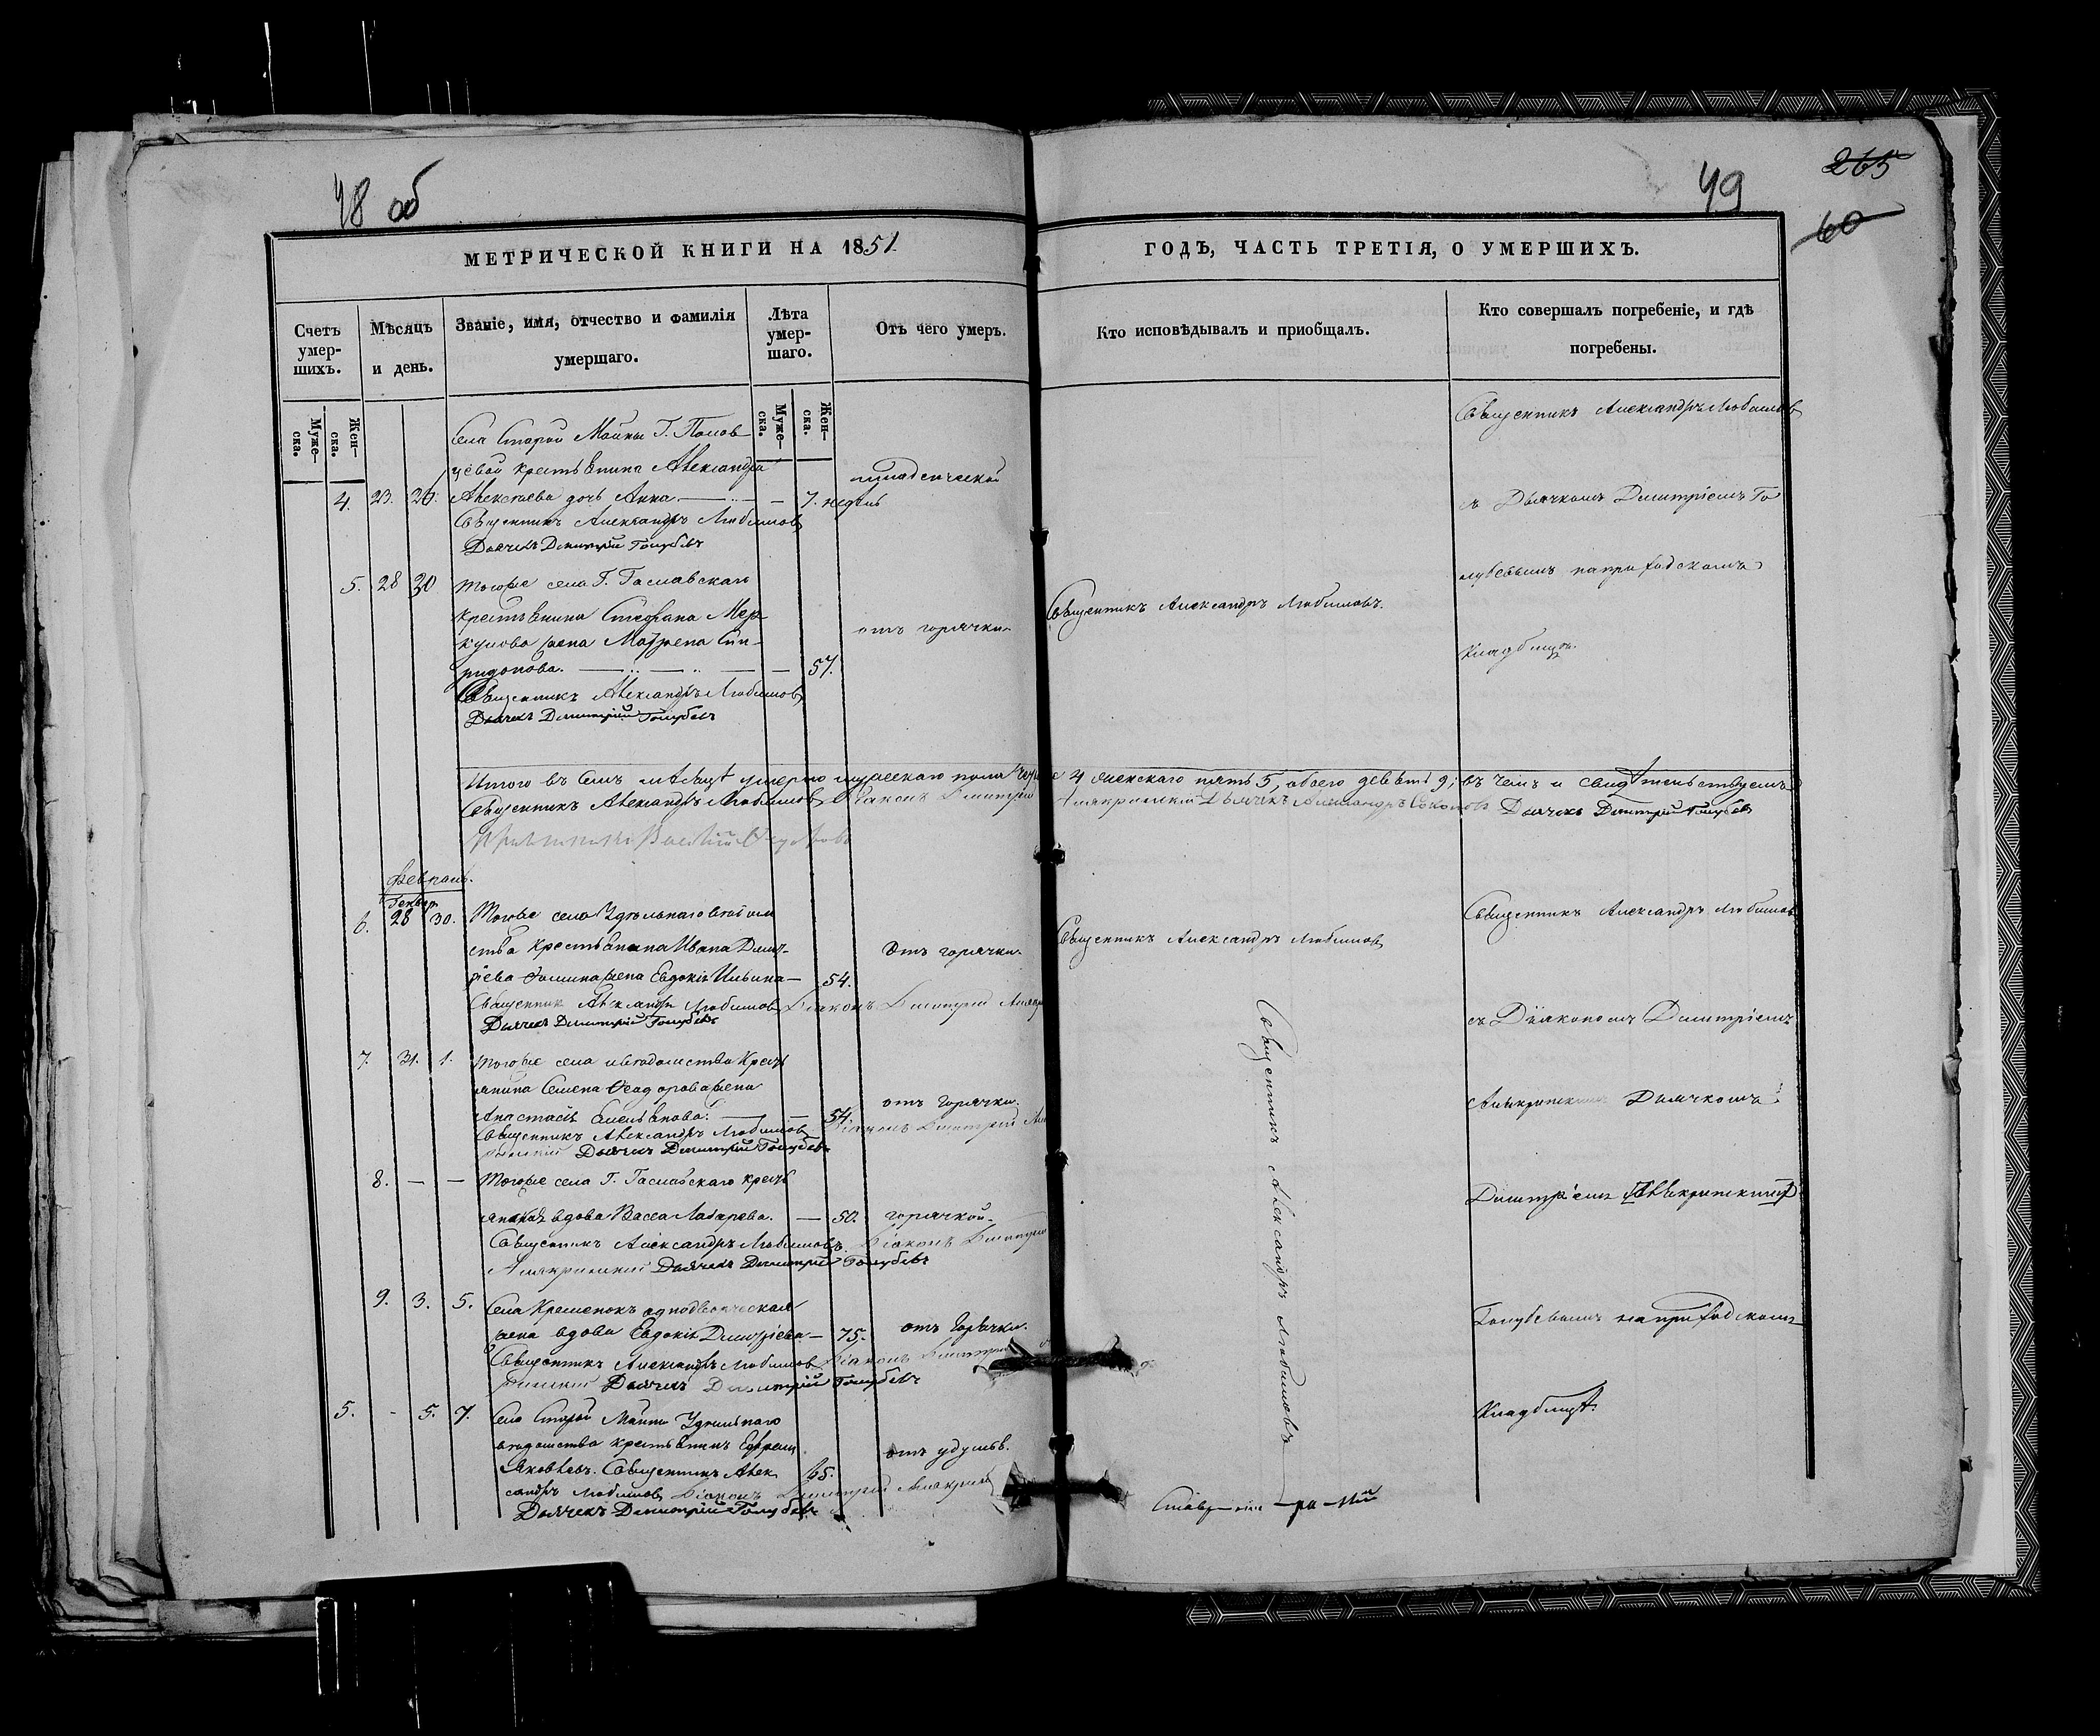 48 об
49
265
60
МЕТРИЧЕСКОЙ КНИГИ НА 1851.
ГОДЪ, ЧАСТЬ ТРЕТІЯ, О УМЕРШИХЪ.
Счетъ умер-шихъ.
Мѣсяцъ и день.
Званіе, имя, отчество и фамилія умершаго.
Лѣта умер-шаго.
Отъ чего умеръ.
Кто исповѣдывалъ и пріобщалъ.
Кто совершалъ погребеніе, и гдѣ погребены.
Муже-ска.
Жен-ска.
Муже-ска.
Жен-ска.
Села Старой Майны Г.
крестьянина Александра
4. 23. 26. Алексѣева дочь Анна — 7. недѣль
младенческой
Священникъ Александръ Любимовъ
Дьячекъ Димитрій Голубевъ
5. 28 30 Тогоже села Г.
крестьянина Стефана Мер-
кулова жена Матрена Спи-
ридонова. — 57.
отъ горячки
Священникъ Александръ Любимовъ.
Священникъ Александръ Любимовъ
Дьячекъ Димитрій Голубевъ
Священникъ Александръ Любимовъ
съ Дьячкомъ Димитріемъ Го
лубевымъ на приходскомъ
Кладбищѣ.
Итого въ семъ мѣсяцѣ умерло мужескаго пола четыре 4 женскаго пять 5, обоего девять 9; въ чемъ и свидѣтельствуемъ
Священникъ Александръ Любимовъ Діаконъ Димитрій Дьячекъ Александръ Соколовъ Дьячекъ Димитрій Голубевъ
Февраль.
Генвар.
6. 28 30. Тогоже села Удѣльнаго вѣдом
ства крестьянина Ивана Дмит-
ріева Фомина жена Евдокія Ильина — 54.
Отъ горячки.
Священникъ Александръ Любимовъ
Священникъ Александръ Любимовъ Діаконъ Димитрій
Дьячекъ Димитрій Голубевъ
7. 31. 1. Тогоже села и вѣдомства Крест
янина Семена Ѳеодорова жена
Анастасія Емельянова. — 54.
отъ горячки.
Священникъ Александръ Любимовъ Діаконъ Димитрій
Дьячекъ Димитрій Голубевъ
8. — — Тогоже села Г. крест
вдова Васса Лазарева. — 50.
горячкой.
Священникъ Александръ Любимовъ. Діаконъ Димитрій
Дьячекъ Димитрій Голубевъ
9. 3. 5. Села Кременокъ однодворческая
жена вдова Евдокія Димитріева — 75.
отъ горячки.
Священникъ Александръ Любимовъ Діаконъ Димитрій
Дьячекъ Димитрій Голубевъ
5. - 5. 7. Села Старой Майны Удѣльнаго
вѣдомства крестьянинъ Ефремъ
Яковлевъ. Священникъ Алек 65.
отъ удушья.
сандръ Любимовъ Діаконъ Димитрій
Дьячекъ Димитрій Голубевъ
Священникъ Александръ Любимовъ
Священникъ Александръ Любимовъ
съ Діакономъ Димитріемъ
Дьячкомъ
Димитріемъ
Голубевымъ на приходскомъ
Кладбищѣ.